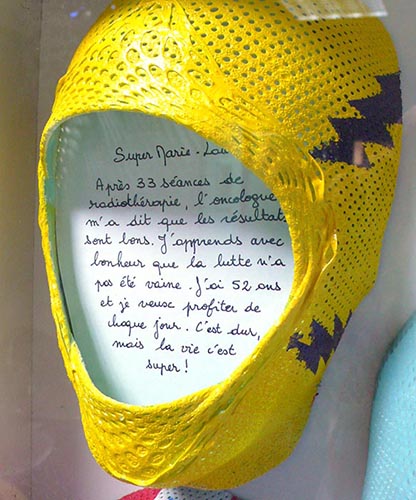 Super Marie-Lau
Après 33 séances de
radiothérapie, l'oncologue
m'a dit que les résultats
sont bons. J'apprends avec
bonheur que la lutte n'a
pas été vaine. J'ai 52 ans
et je veux profiter de
chaque jour. C'est dur,
mais la vie c'est
super!